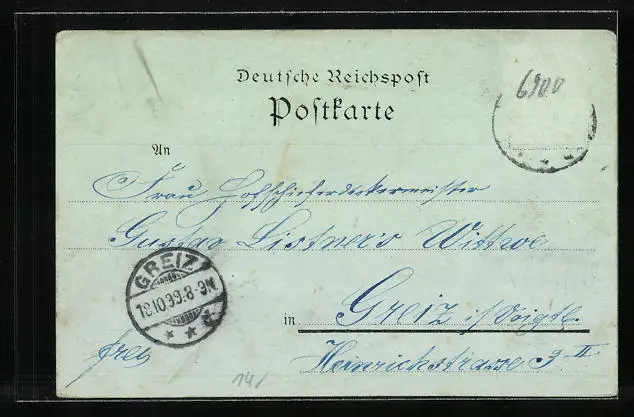 6900
Deutsche Reichspost
Postkarte
An
Frau Hofschieferdeckermeister
Gustav Listner's Wittwe
GREIZ
18.10.99.8-9N.
in Greiz i/Voigtl.
frei
Heinrichstrasse 9 II
14/